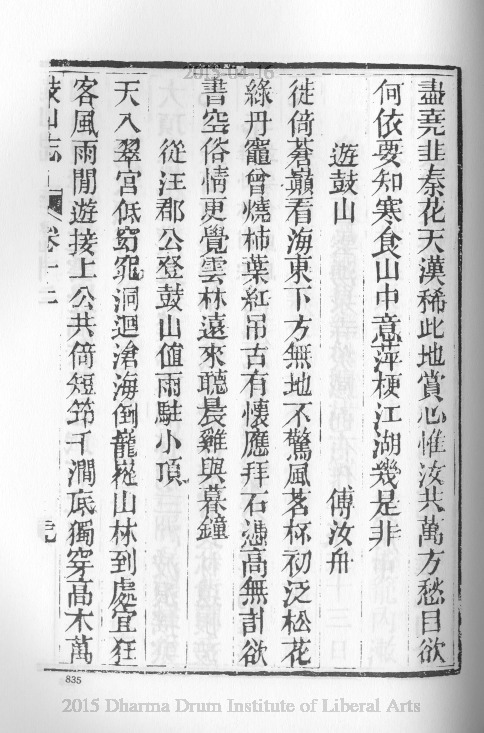 2015-04-16
盡堯韭秦花天漢稀此地賞心惟汝共萬方愁目欲
何依要知寒食山中意萍梗江湖幾是非
遊鼓山 傅汝舟
徙倚蒼巔看海東下方無地不驚風茗杯初泛松花
綠丹竈曾燒柿葉紅吊古有懷應拜石憑高無計欲
書空俗情更覺雲林遠來聽晨雞與暮鐘
從汪郡公登鼓山值雨駐小頂
天入翠宮低窈窕洞迴滄海倒龍嵸山林到處宜狂
客風雨閒遊接上公共倚短筇千澗底獨穿高木萬
鼓山志 卷十上
835
2015 Dharma Drum Institute of Liberal Arts